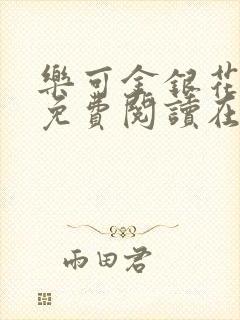 樂可金銀花
免費閱讀在
雨田君